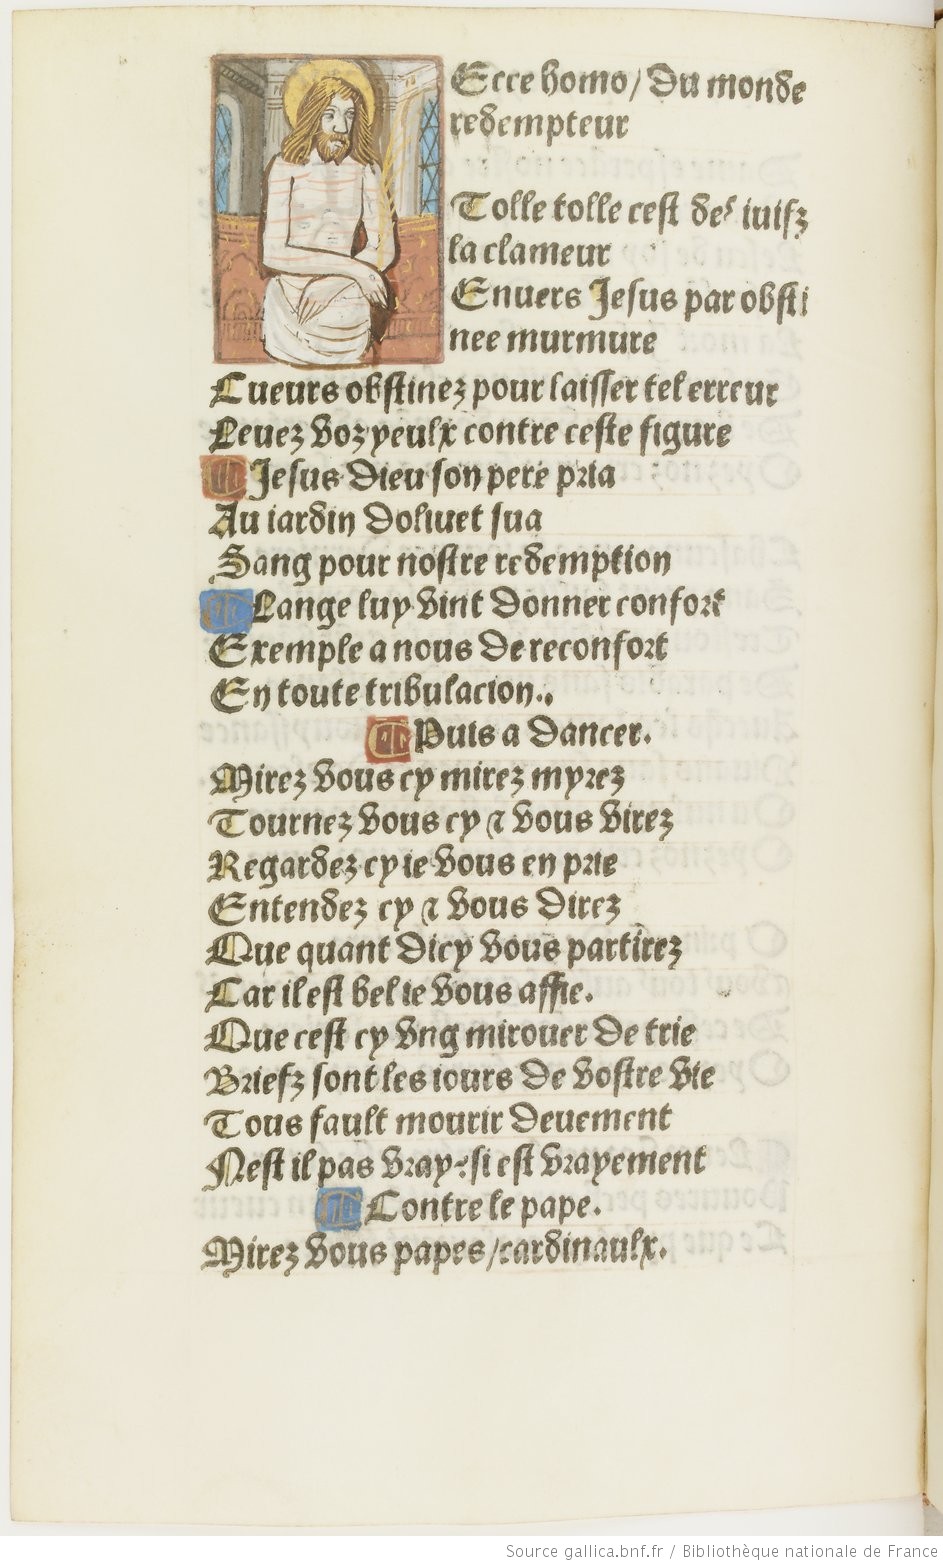 Ecce homo/ Du monde
redempteur
Tolle tolle cest des iuifz
la clameur
Enuers Jesus par obsti
nee murmure
Cueurs obstinez pour laisser tel erreur
Leuez voz yeulx contre ceste figure
Jesus Dieu son pere pria
Au iardin Doliuet sua
Sang pour nostre redemption
Lange luy vint Donner confort
Exemple a nous De reconfort
En toute tribulacion..
Puis a Dancer.
Mirez vous cy mirez myrez
Tournez vous cy ⁊ vous virez
Regardez cy ie vous en prie
Entendez cy ⁊ vous Direz
Que quant Dicy vous partirez
Car il est bel ie vous affie.
Que cest cy vng mirouer De trie
Briefz sont les iours De vostre vie
Tous fault mourir Deuement
Nest il pas vray: si est vrayement
Contre le pape.
Mirez vous papes/cardinaulx.
Source gallica.bnf.fr / Bibliothèque nationale de France